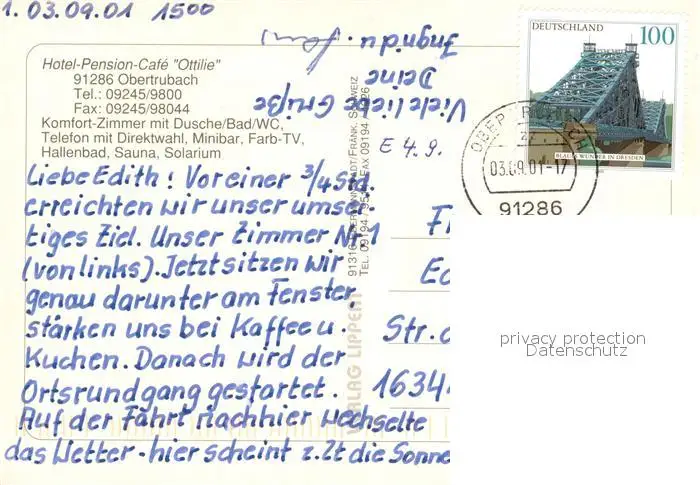 1. 03.09.01 1500
Hotel-Pension-Café "Ottilie"
91286 Obertrubach
Tel.: 09245/9800
Fax: 09245/98044
Komfort-Zimmer mit Dusche/Bad/WC,
Telefon mit Direktwahl, Minibar, Farb-TV,
Hallenbad, Sauna, Solarium
Liebe Edith! Vor einer 3/4 Std.
erreichten wir unser
tiges Ziel. Unser Zimmer Nr. 1
(von links). Jetzt sitzen wir
genau darunter am Fenster,
stärken uns bei Kaffee u.
Kuchen. Danach wird der
Ortsrundgang gestartet.
Auf der Fahrt nachhier wechselte
das Wetter - hier scheint z.Zt die Sonne
Viele liebe Grüße
Deine
Ingrid u.
E 4.9.
VERLAG LIPPERT
TEL. 09194 FAX 09194
DEUTSCHLAND
100
BLAUES WUNDER IN DRESDEN
03.09.01-17
91286
Str. d
1634
privacy protection
Datenschutz